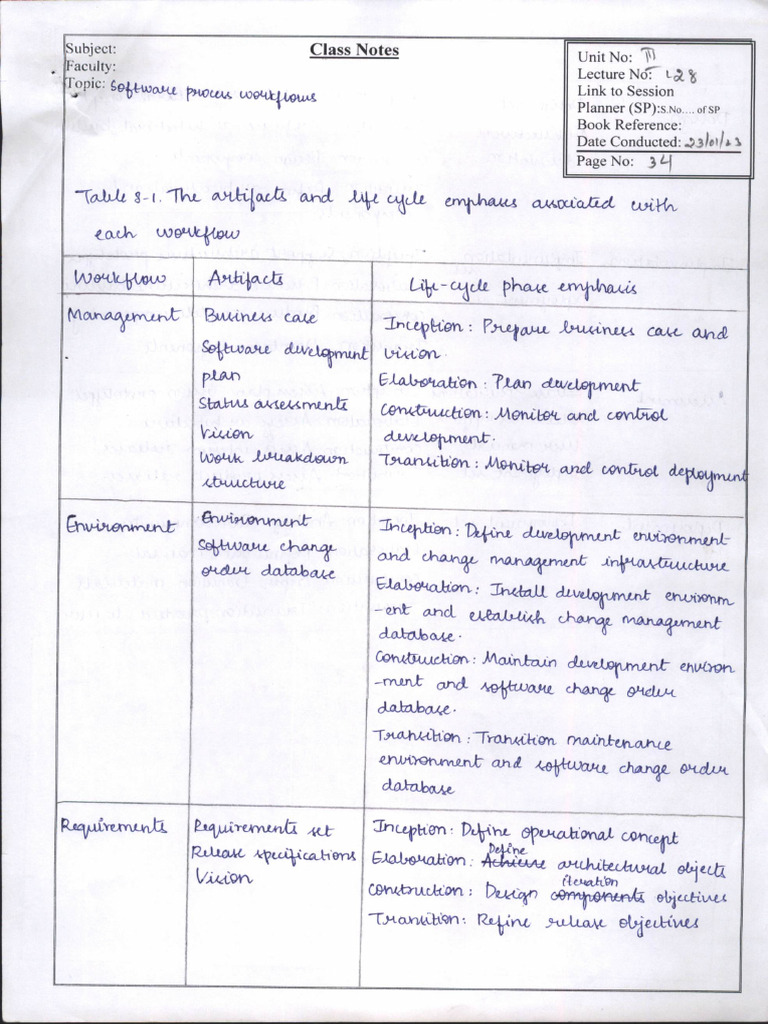 Class Notes
Subject:
Faculty:
Topic: Software process workflows
Unit No: III
Lecture No: L28
Link to Session
Planner (SP):S.No.... of SP
Book Reference:
Date Conducted: 23/01/23
Page No: 34
Table 8-1. The artifacts and life cycle emphases associated with
each workflow
Workflow
Artifacts
Life-cycle phase emphasis
Management
Business case
Software development
plan
Status assessments
Vision
Work breakdown
structure
Inception: Prepare business case and
vision.
Elaboration: Plan development
Construction: Monitor and control
development.
Transition: Monitor and control deployment
Environment
Environment
Software change
order database
Inception: Define development environment
and change management infrastructure
Elaboration: Install development environm
-ent and establish change management
database.
Construction: Maintain development environ
-ment and software change order
database.
Transition: Transition maintenance
environment and software change order
database
Requirements
Requirements set
Release specifications
Vision
Inception: Define operational concept
Elaboration: Achieve Define architectural objects
Construction: Design components iteration objectives
Transition: Refine release objectives